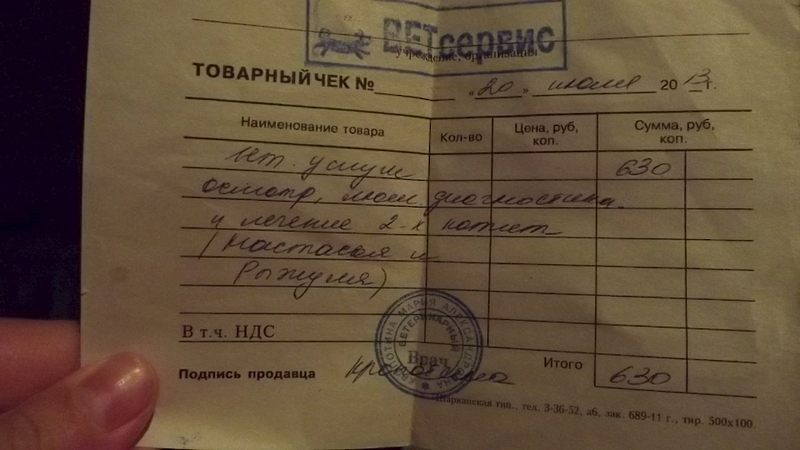 ВЕТсервис
учреждение, организация
ТОВАРНЫЙ ЧЕК № „20„ июля 2013г.
Наименование товара Кол-во Цена, руб, коп. Сумма, руб, коп.
вет. услуги 630
осмотр, люм. диагностика
и лечение 2-х котят
(Настасья и
Рыжуля)
В т.ч. НДС
ВЕТЕРИНАРНЫЙ
Врач
МАРИЯ АЛЕКСАНДРОВНА
Итого 630
Подпись продавца
Шарканская тип., тел. 3-36-52, а6, зак. 689-11 г., тир. 500х100.